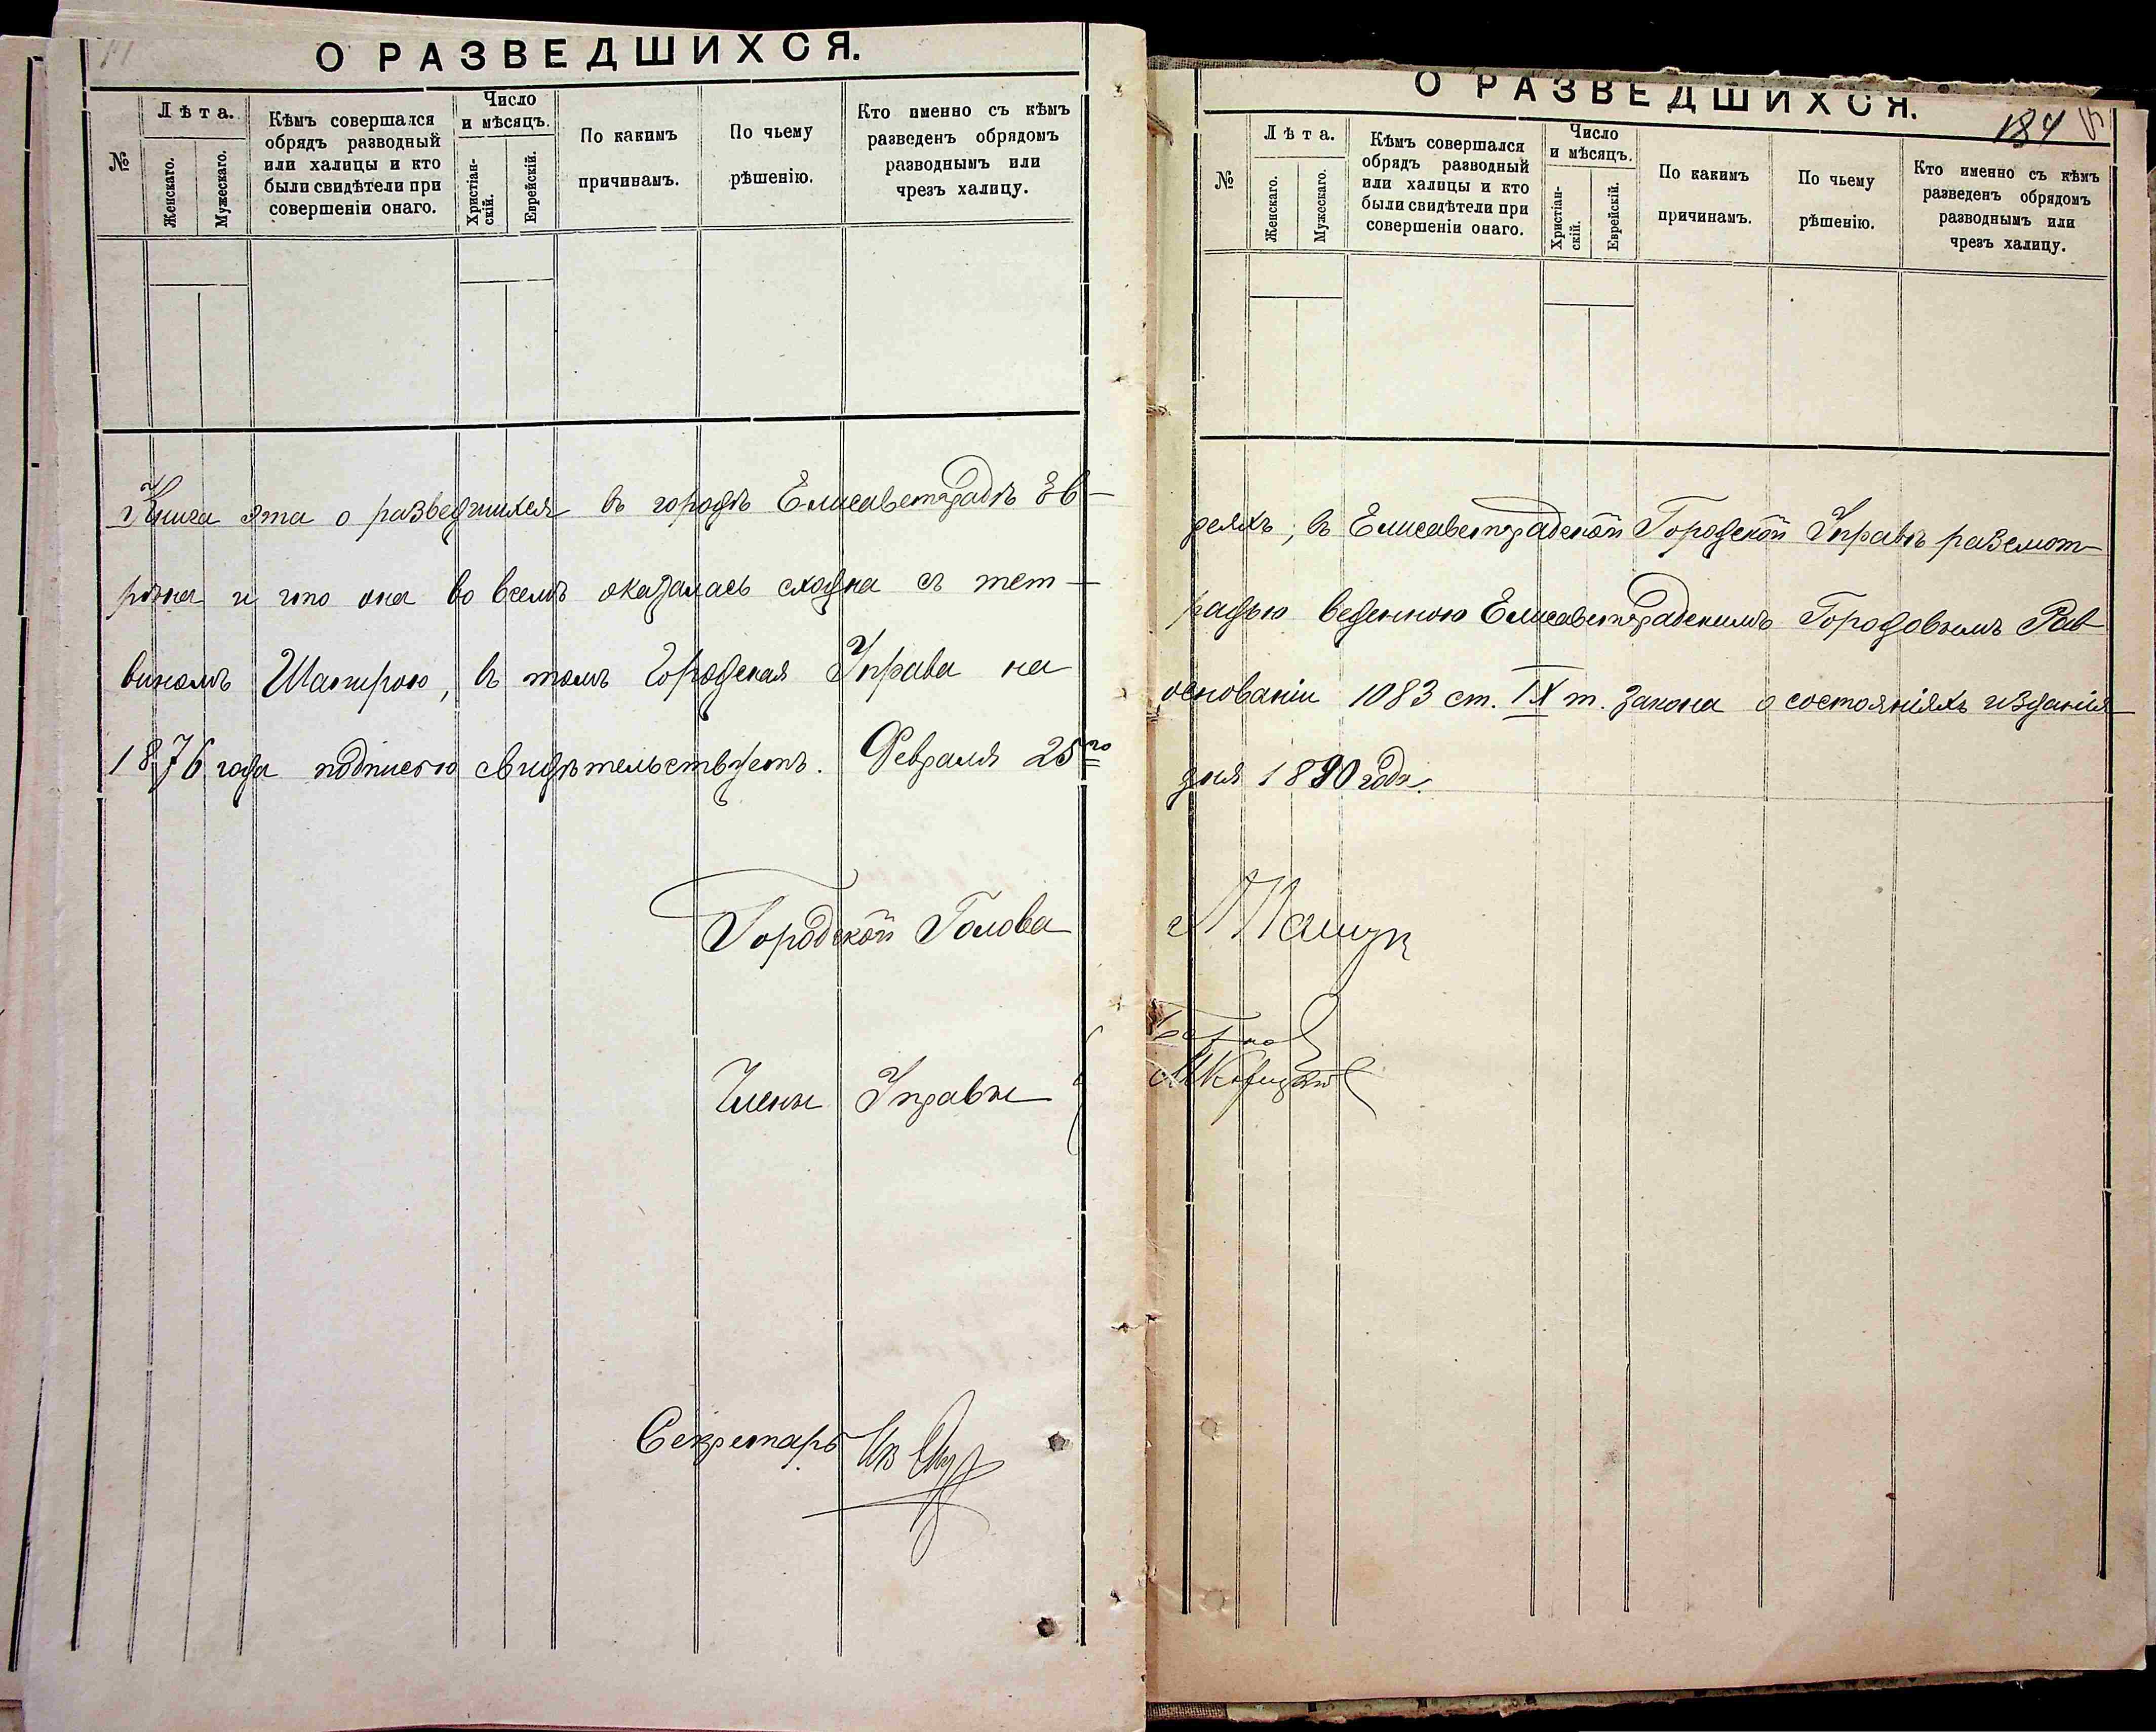 О РАЗВЕДШИХСЯ.
№
Лѣта.
Женскаго.
Мужескаго.
Кѣмъ совершался
обрядъ разводный
или халицы и кто
были свидѣтели при
совершеніи онаго.
Число
и мѣсяцъ.
Христіан-
скій.
Еврейскій.
По какимъ
причинамъ.
По чьему
рѣшенію.
Кто именно съ кѣмъ
разведенъ обрядомъ
разводнымъ или
чрезъ халицу.
Книга эта о разведшихся въ городѣ Елисаветградѣ Ев-
рѣна и что она во всемъ оказалась сходна съ тет-
виномъ Шапирою, въ томъ Городская Управа на
1876 года подписью свидѣтельствуетъ. Февраля 25го
Городской Голова
Члены Управы
Секретарь
О РАЗВЕДШИХСЯ.
184
№
Лѣта.
Женскаго.
Мужескаго.
Кѣмъ совершался
обрядъ разводный
или халицы и кто
были свидѣтели при
совершеніи онаго.
Число
и мѣсяцъ.
Христіан-
скій.
Еврейскій.
По какимъ
причинамъ.
По чьему
рѣшенію.
Кто именно съ кѣмъ
разведенъ обрядомъ
разводнымъ или
чрезъ халицу.
реяхъ, въ Елисаветградской Городской Управѣ разсмот-
радью веденною Елисаветградскимъ Городовымъ Рав-
основаніи 1083 ст. IX т. Закона о состояніяхъ изданія
дня 1890 года.